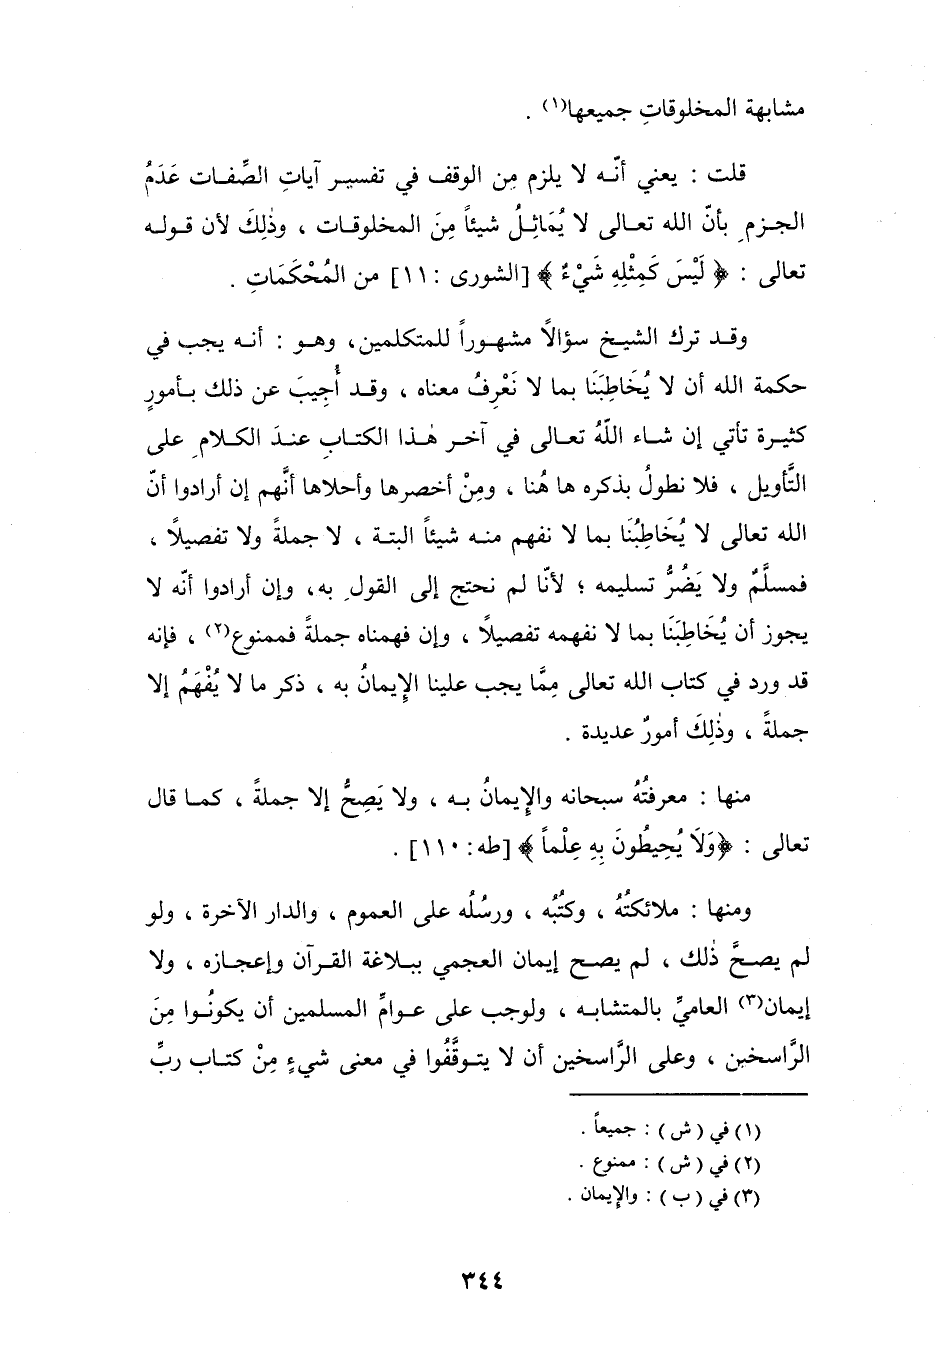 مشابهة المخلوقاتِ جميعها(١) .
قلت : يعني أنّه لا يلزم مِن الوقف في تفسير آياتِ الصِّفات عَدَمُ
الجزمِ بأنّ الله تعالى لا يُمَاثِلُ شيئاً مِنَ المخلوقات ، وذٰلِكَ لأن قوله
تعالى : ﴿ لَيْسَ كَمِثْلِهِ شَيْءٌ ﴾ [الشورى : ١١] من المُحْكَمَاتِ .
وقد ترك الشيخ سؤالاً مشهوراً للمتكلمين، وهو : أنه يجب في
حكمة الله أن لا يُخَاطِبَنَا بما لا نَعْرِفُ معناه ، وقد أُجِيبَ عن ذلك بأمورٍ
كثيرة تأتي إن شاء اللّهُ تعالى في آخر هٰذا الكتابِ عندَ الكلامِ على
التَّأويل ، فلا نطولُ بذكره ها هُنا ، ومِنْ أخصرها وأحلاها أنَّهم إن أرادوا أنّ
الله تعالى لا يُخَاطِبُنَا بما لا نفهم منه شيئاً البتة ، لا جملةً ولا تفصيلاً ،
فمسلَّمٌ ولا يَضُرُّ تسليمه ؛ لأنّا لم نحتج إلى القولِ به، وإن أرادوا أنّه لا
يجوز أن يُخَاطِبَنَا بما لا نفهمه تفصيلاً ، وإن فهمناه جملةً فممنوع(٢) ، فإنه
قد ورد في كتاب الله تعالى مِمَّا يجب علينا الإِيمانُ به ، ذكر ما لا يُفْهَمُ إلا
جملةً ، وذٰلِكَ أمورٌ عديدة .
منها : معرفتُهُ سبحانه والإِيمانُ به ، ولا يَصِحُّ إلا جملةً ، كما قال
تعالى : ﴿وَلَا يُحِيطُونَ بِهِ عِلْماً ﴾ [طه: ١١٠] .
ومنها : ملائكتُهُ ، وكتُبُه ، ورسُلُه على العموم ، والدار الآخرة ، ولو
لم يصحَّ ذٰلك ، لم يصح إيمان العجمي ببلاغة القرآن وإعجازه ، ولا
إيمان(٣) العاميِّ بالمتشابه ، ولوجب على عوامِّ المسلمين أن يكونُوا مِنَ
الرَّاسخين ، وعلى الرَّاسخين أن لا يتوقَّفُوا في معنى شيءٍ مِنْ كتاب ربِّ
(١) في ( ش ) : جميعاً .
(٢) في ( ش ) : ممنوع .
(٣) في ( ب ) : والإِيمان .
٣٤٤